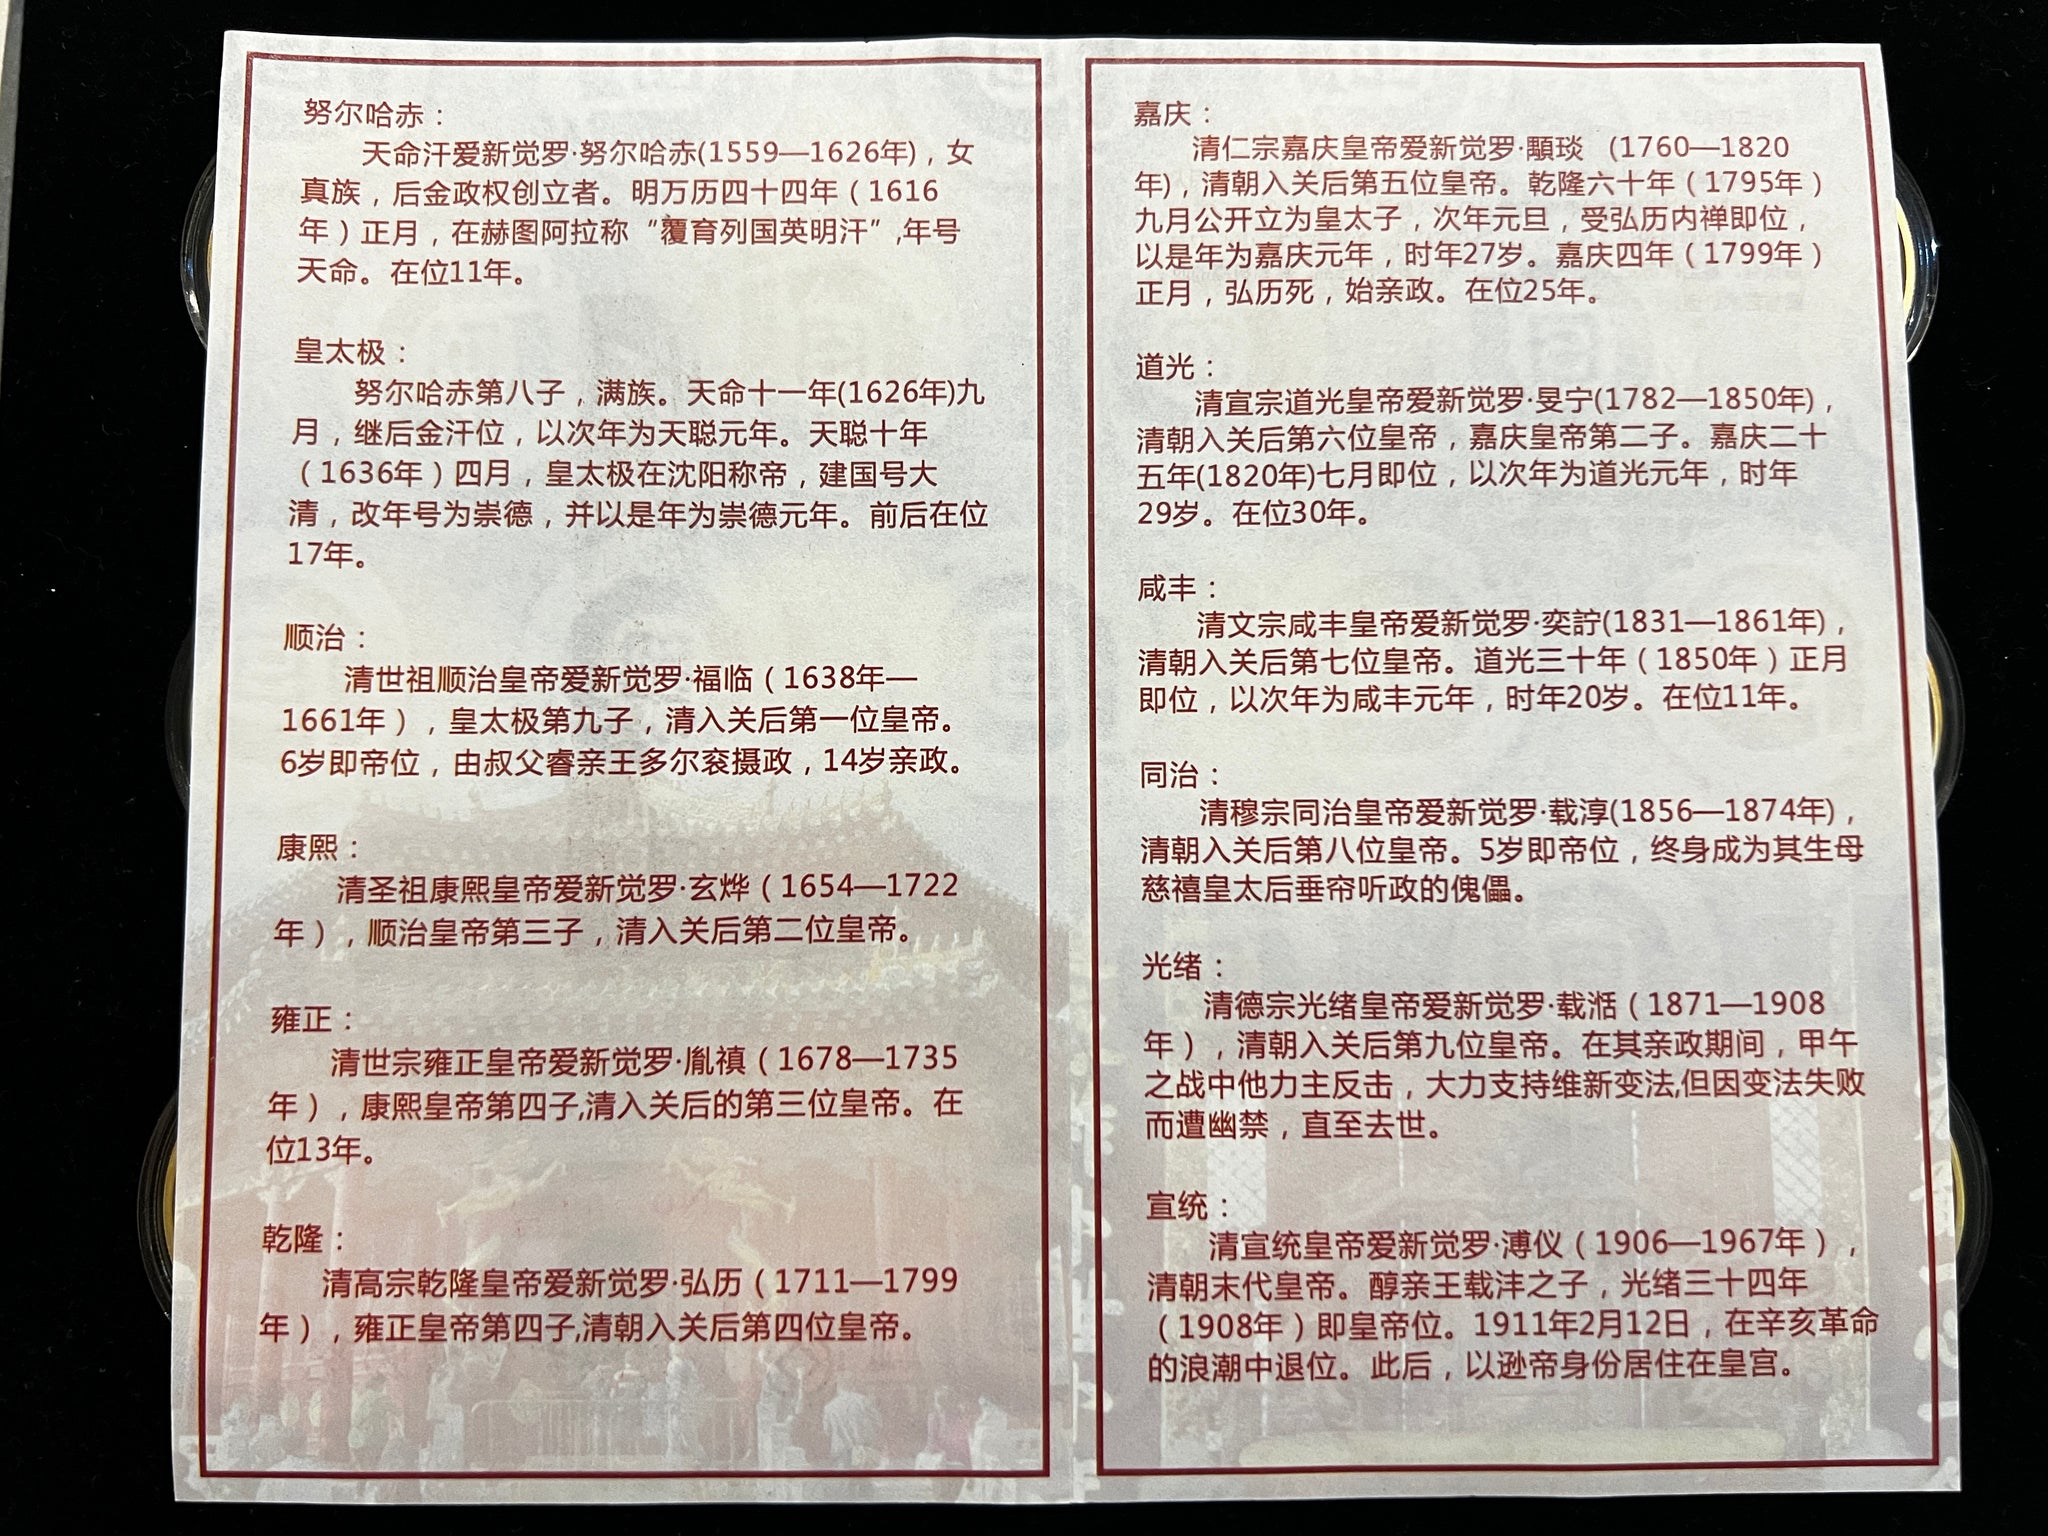 努尔哈赤：
天命汗爱新觉罗·努尔哈赤(1559—1626年)，女
真族，后金政权创立者。明万历四十四年（1616
年）正月，在赫图阿拉称“覆育列国英明汗”,年号
天命。在位11年。
皇太极：
努尔哈赤第八子，满族。天命十一年(1626年)九
月，继后金汗位，以次年为天聪元年。天聪十年
（1636年）四月，皇太极在沈阳称帝，建国号大
清，改年号为崇德，并以是年为崇德元年。前后在位
17年。
顺治：
清世祖顺治皇帝爱新觉罗·福临（1638年—
1661年），皇太极第九子，清入关后第一位皇帝。
6岁即帝位，由叔父睿亲王多尔衮摄政，14岁亲政。
康熙：
清圣祖康熙皇帝爱新觉罗·玄烨（1654—1722
年），顺治皇帝第三子，清入关后第二位皇帝。
雍正：
清世宗雍正皇帝爱新觉罗·胤禛（1678—1735
年），康熙皇帝第四子,清入关后的第三位皇帝。在
位13年。
乾隆：
清高宗乾隆皇帝爱新觉罗·弘历（1711—1799
年），雍正皇帝第四子,清朝入关后第四位皇帝。
嘉庆：
清仁宗嘉庆皇帝爱新觉罗·顒琰 (1760—1820
年)，清朝入关后第五位皇帝。乾隆六十年（1795年）
九月公开立为皇太子，次年元旦，受弘历内禅即位，
以是年为嘉庆元年，时年27岁。嘉庆四年（1799年）
正月，弘历死，始亲政。在位25年。
道光：
清宣宗道光皇帝爱新觉罗·旻宁(1782—1850年)，
清朝入关后第六位皇帝，嘉庆皇帝第二子。嘉庆二十
五年(1820年)七月即位，以次年为道光元年，时年
29岁。在位30年。
咸丰：
清文宗咸丰皇帝爱新觉罗·奕詝(1831—1861年)，
清朝入关后第七位皇帝。道光三十年（1850年）正月
即位，以次年为咸丰元年，时年20岁。在位11年。
同治：
清穆宗同治皇帝爱新觉罗·载淳(1856—1874年)，
清朝入关后第八位皇帝。5岁即帝位，终身成为其生母
慈禧皇太后垂帘听政的傀儡。
光绪：
清德宗光绪皇帝爱新觉罗·载湉（1871—1908
年），清朝入关后第九位皇帝。在其亲政期间，甲午
之战中他力主反击，大力支持维新变法,但因变法失败
而遭幽禁，直至去世。
宣统：
清宣统皇帝爱新觉罗·溥仪（1906—1967年），
清朝末代皇帝。醇亲王载沣之子，光绪三十四年
（1908年）即皇帝位。1911年2月12日，在辛亥革命
的浪潮中退位。此后，以逊帝身份居住在皇宫。